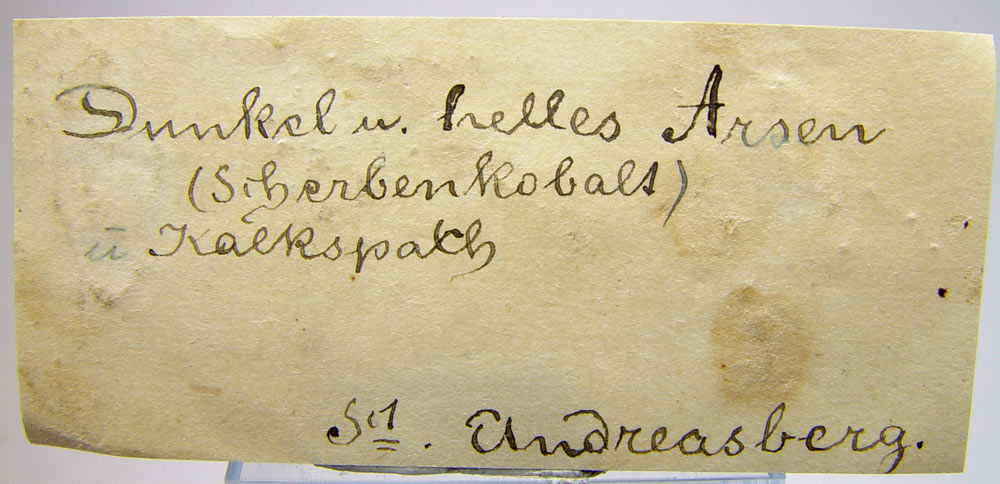 Dunkel u. helles Arsen
(Scherbenkobalt)
u Kalkspath
St. Andreasberg.